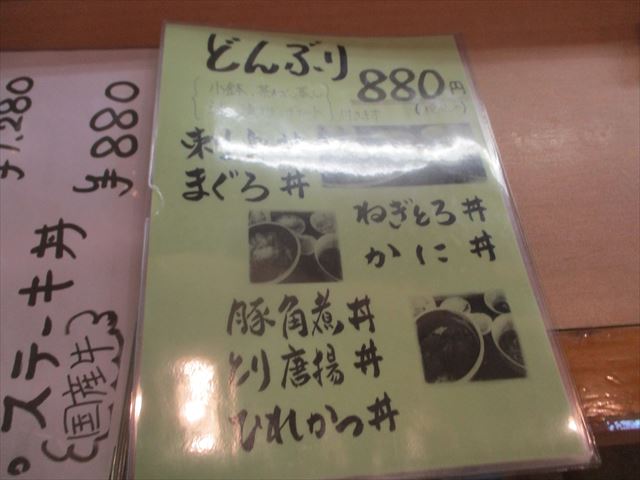 どんぶり
880円
小鉢、茶わん蒸し
付きます
まぐろ丼
ねぎとろ丼
かに丼
豚角煮丼
とり唐揚丼
ひれかつ丼
¥1,280
¥880
ステーキ丼
国産牛